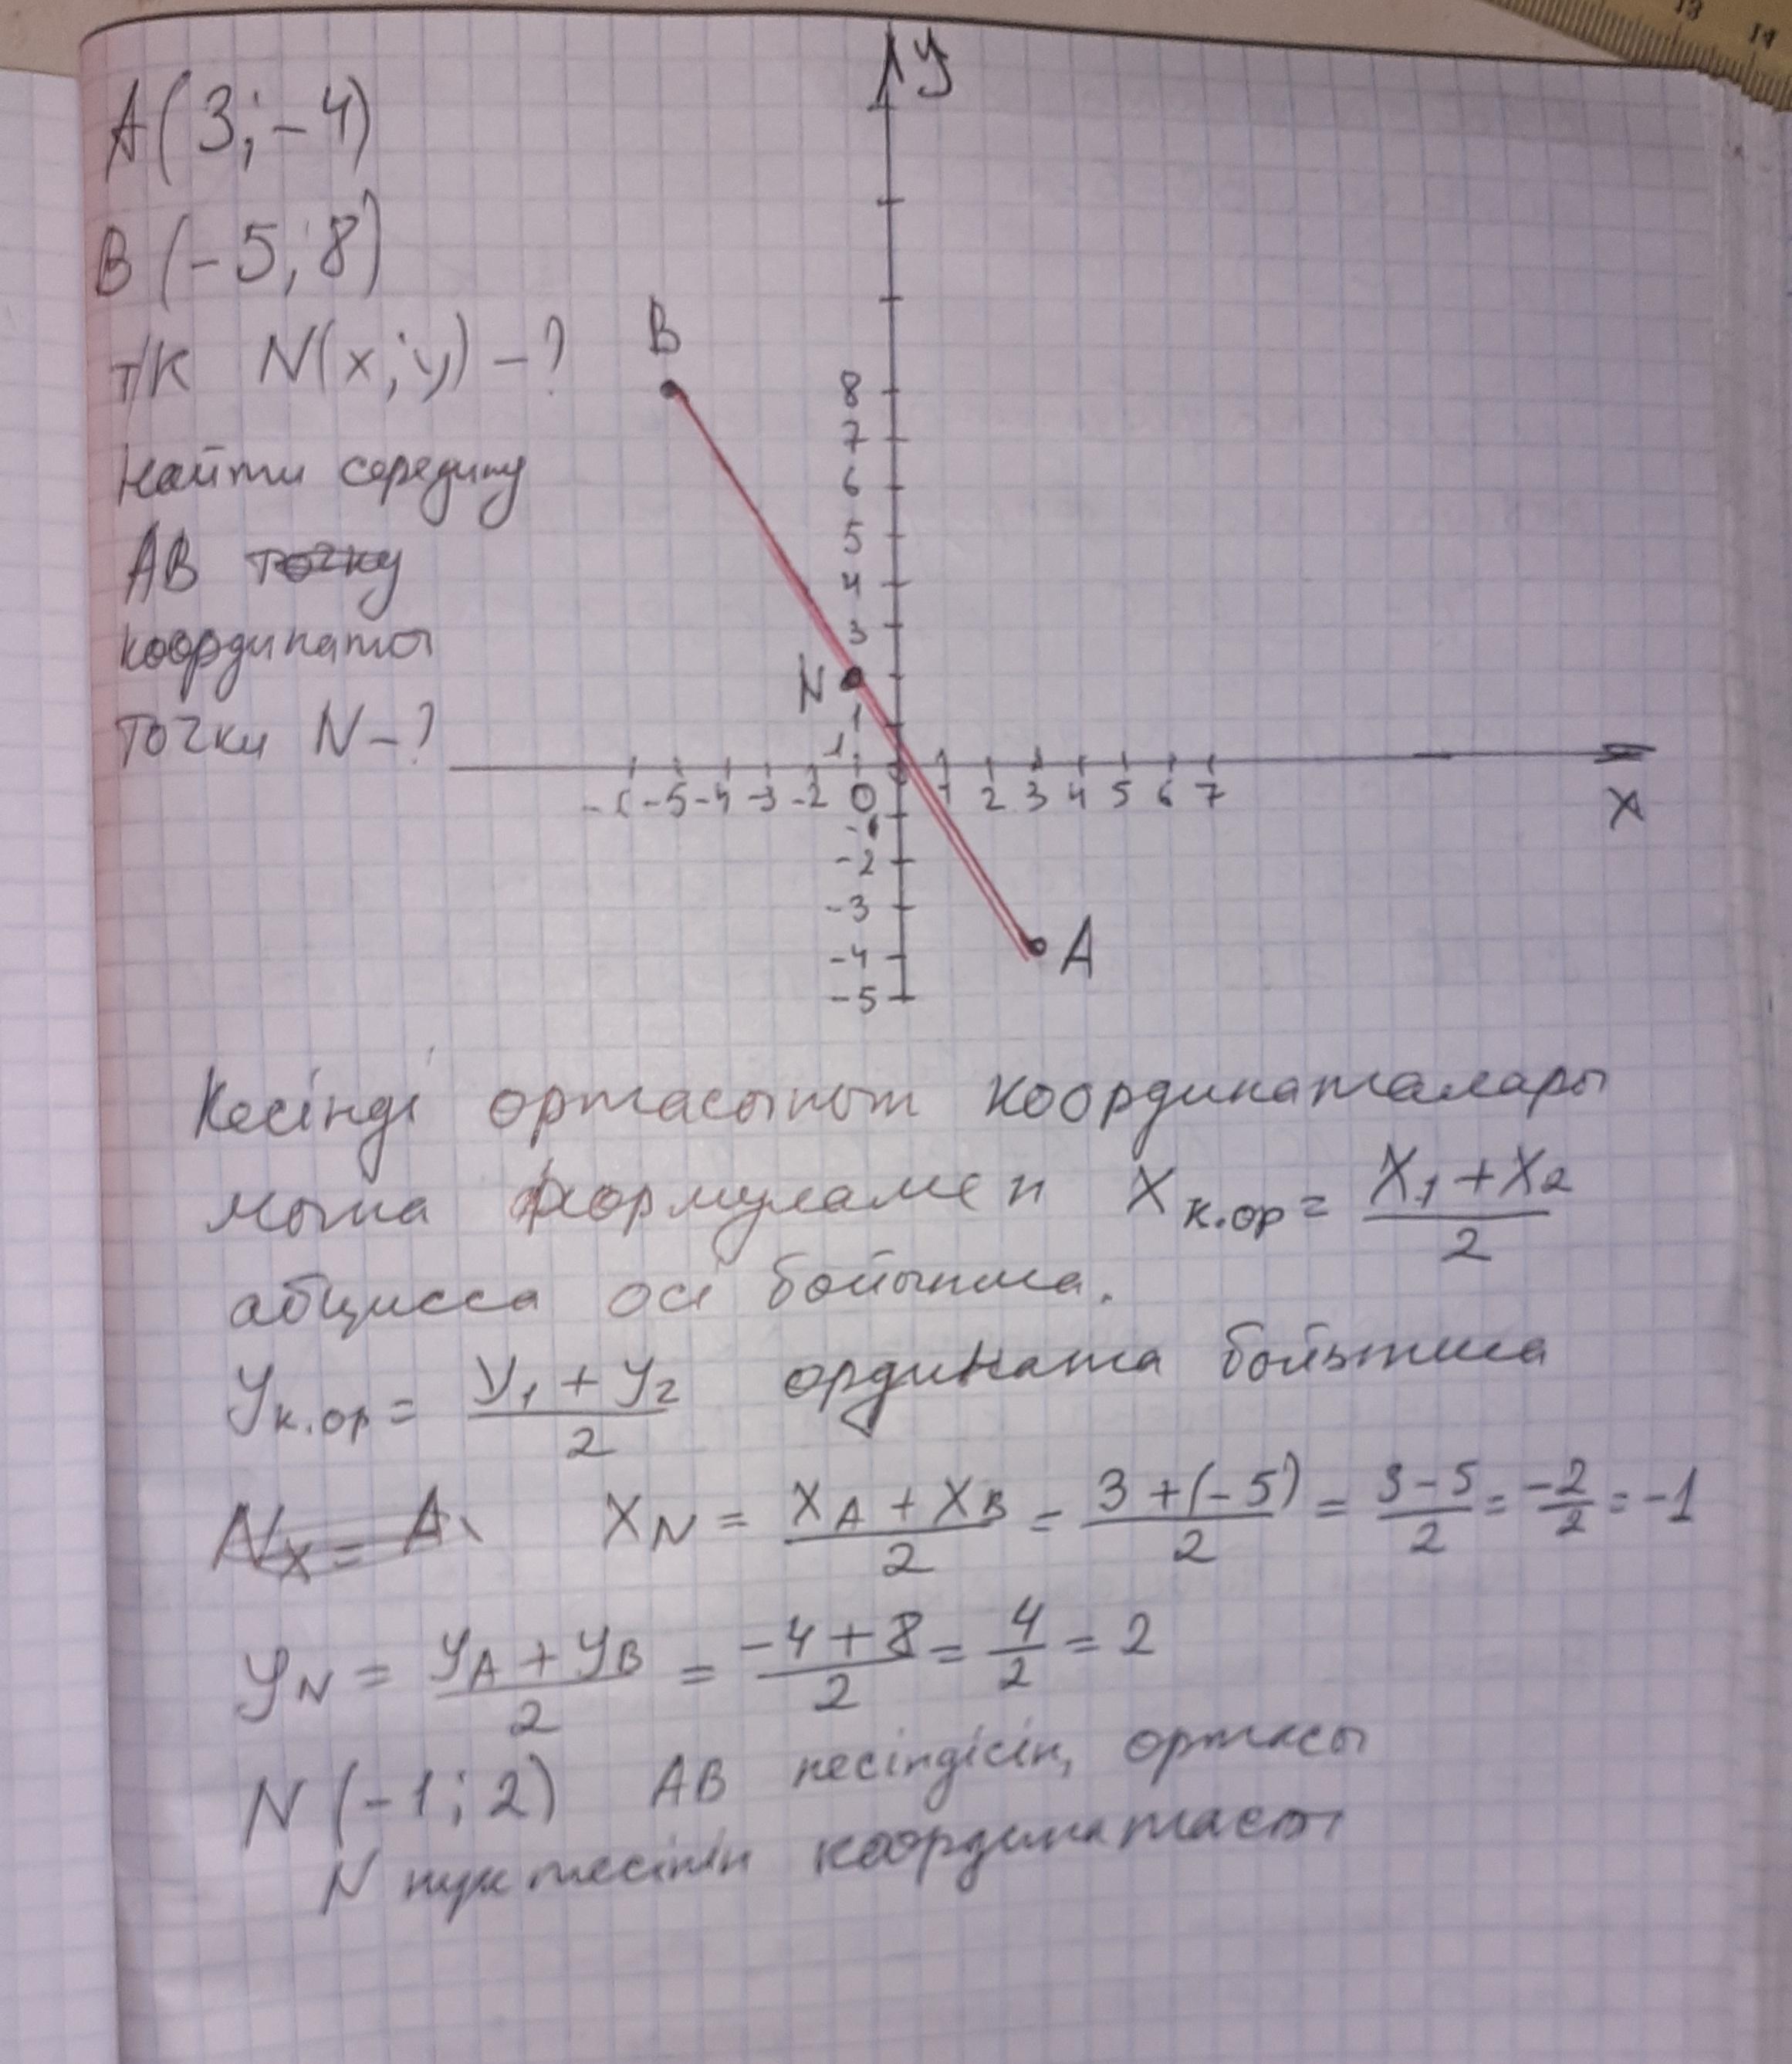 13 14
A(3;-4)
B(-5;8)
т/к N(x;y)-?
Найти середину
AB точку
координаты
точки N-?
y
B
8
7
6
5
4
3
N
1
-1
-5 -4 -3 -2 0 1 2 3 4 5 6 7
x
-2
-3
-4 A
-5
Кесінді ортасының координаталары
мына формуламен X к.ор = (X₁+X₂)/2
абцисса осі бойынша.
У к.ор = (У₁+У₂)/2 ордината бойынша
Nx = A
X_N = (X_A+X_B)/2 = (3+(-5))/2 = (3-5)/2 = -2/2 = -1
У_N = (У_A+У_B)/2 = (-4+8)/2 = 4/2 = 2
N(-1;2) AB кесіндісің ортасы
N нүктесінің координатасы